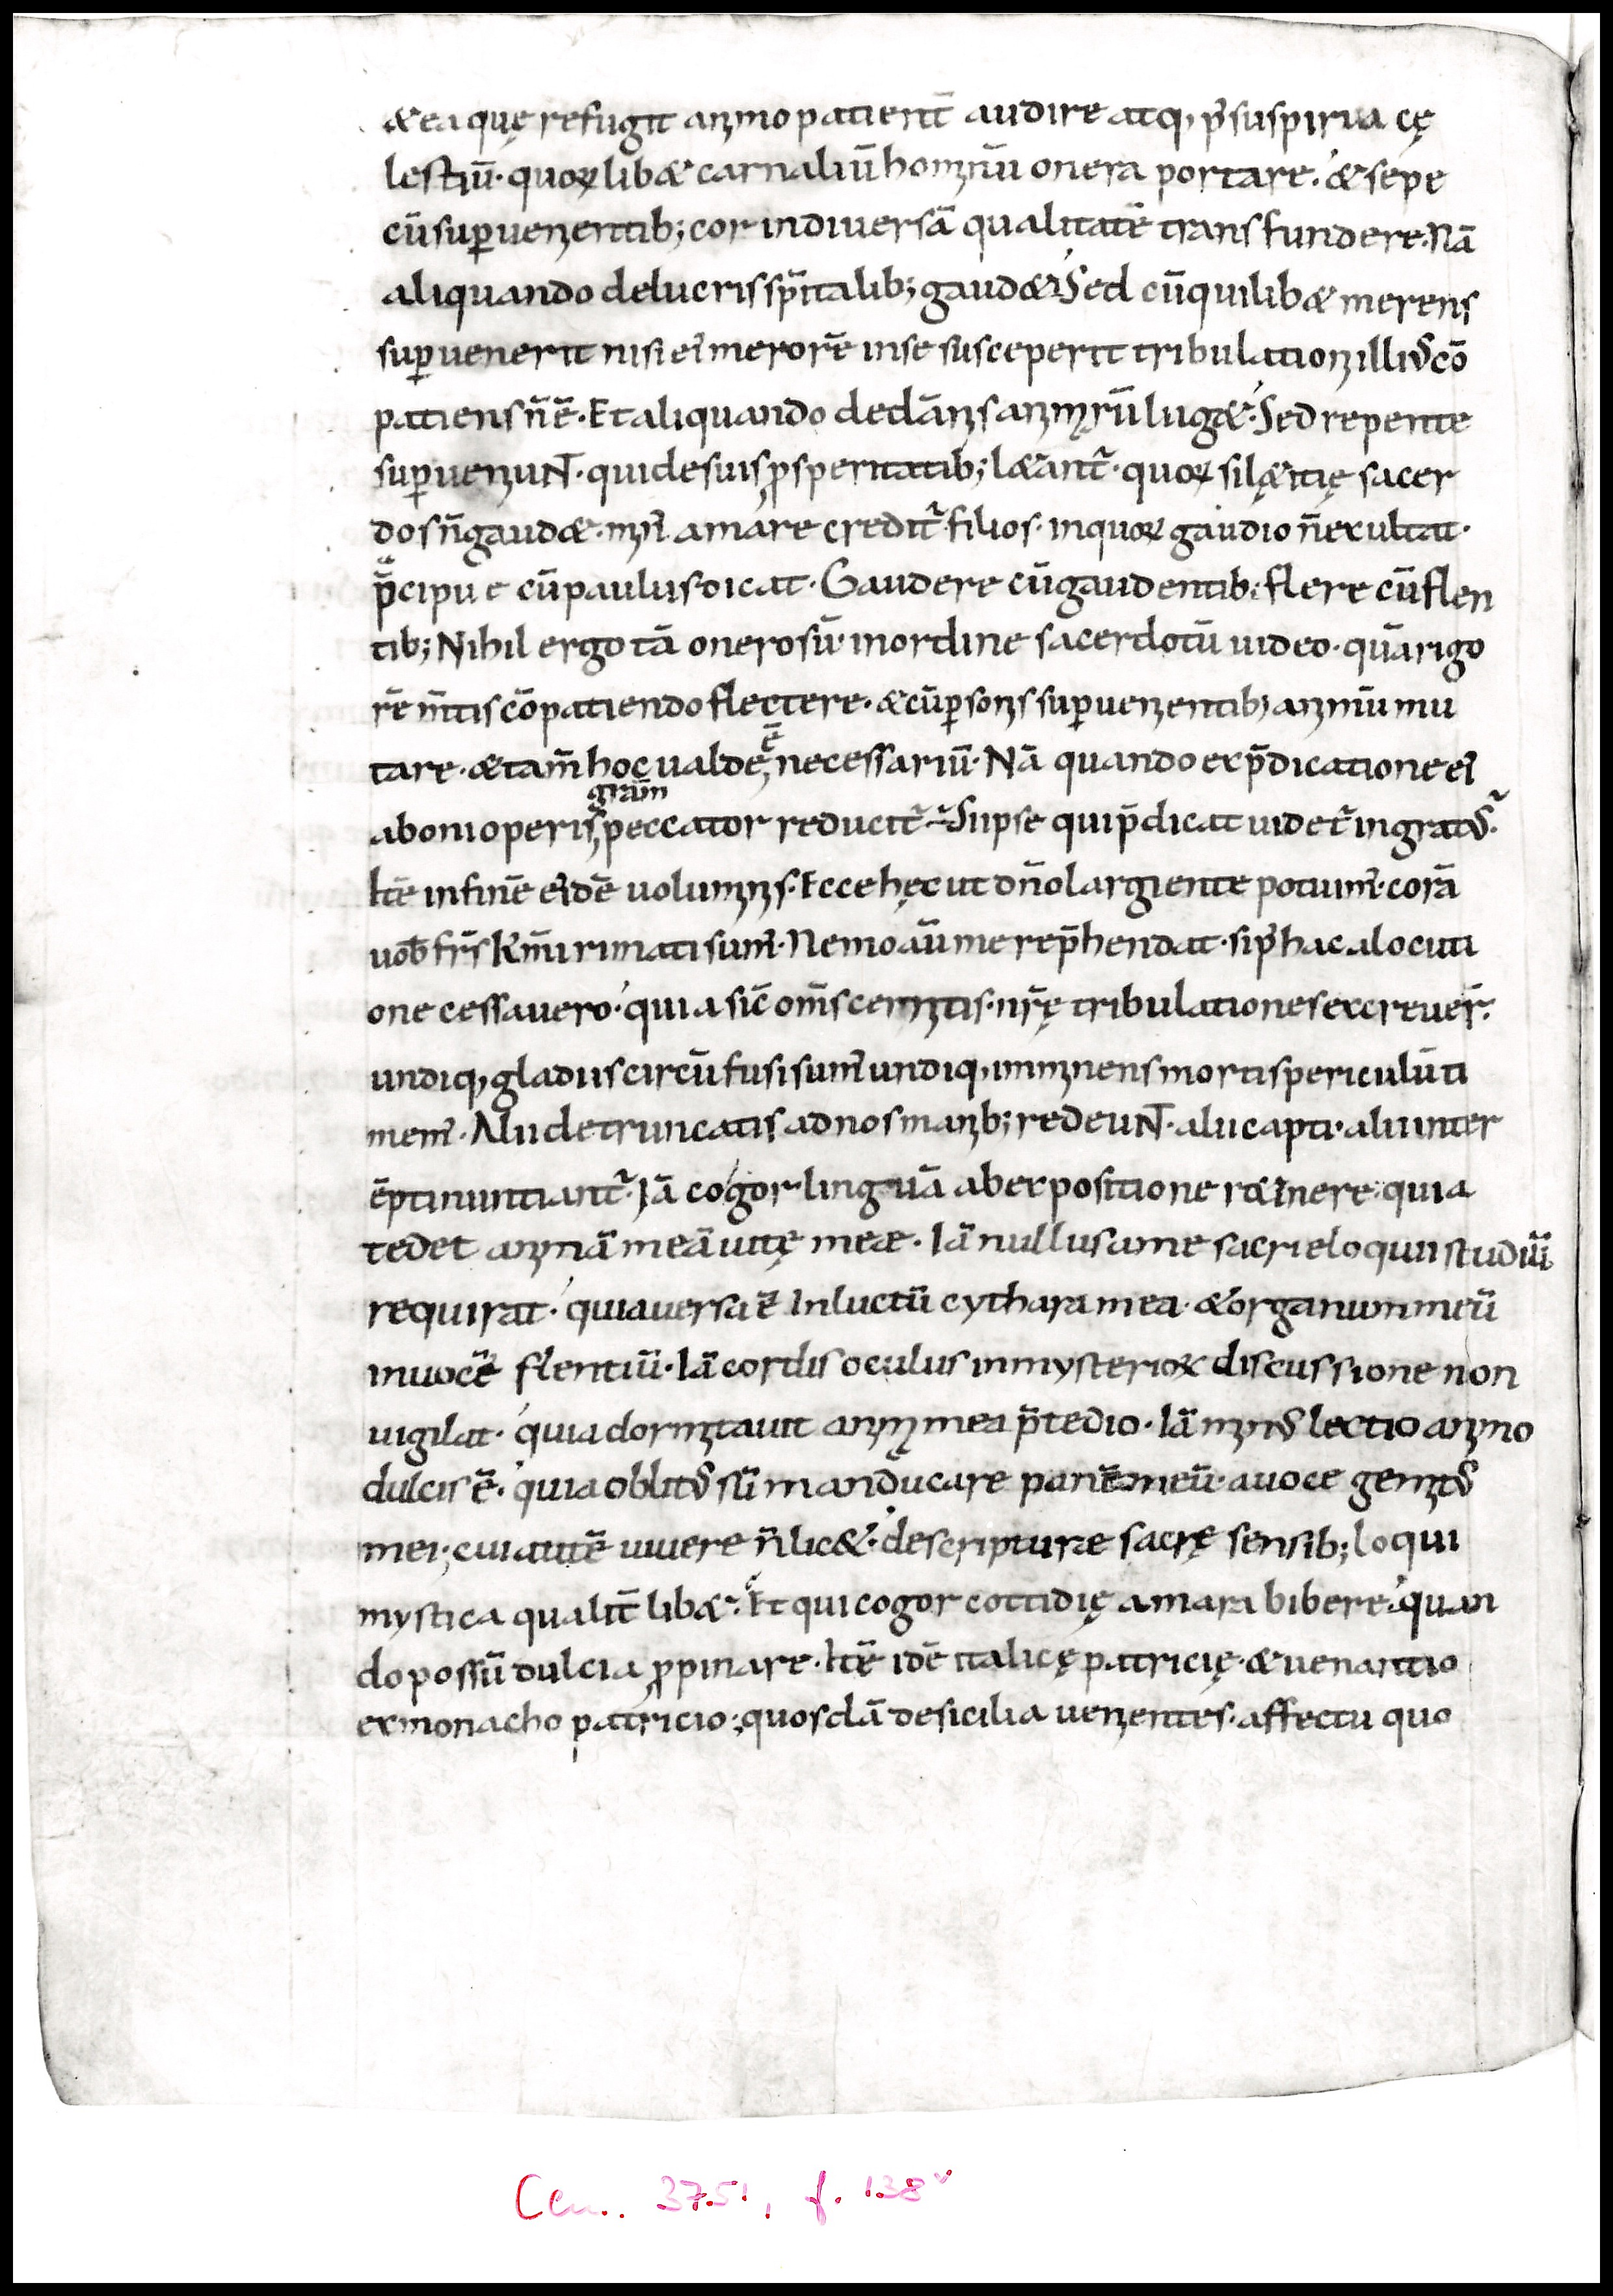 &ea quę refugit anımo patient̄ audire atq; p̱ suspiria cę
lestiū· quoꝝlib& carnaliū homınū onera portare· & sepe
cūsuꝑuenıentib; cor indiuersā qualitatē transfundere. Nā
aliquando delucris sp̄italib; gaud&· Sed cūquilib& merens
suꝑuenerit nisi ei᾿ merorē inse susceperit tribulationı illi᾿ cō
patiens n̄ ē· Et aliquando dedānıs anımarū lug&· Sed repente
suꝑuenıuNT· quidesuis ꝓsperitatib; l&ant᾿· quoꝝ si lę&itię sacer
dos n̄ gaud&· mın᾿ amare credit᾿ filios· inquoꝝ gaudio n̄ exultat·
p̄cipue cūpaulus dicat· Gaudere cūgaudentib; flere cūflen
tib; Nihil ergo tā onerosū inordine sacerdotū uideo· quā rigo
rē m̄tis cōpatiendo flectere· & cūꝑsonıs suꝑuenıentib; anımū mu
tare· & tam̄ hoc ualde ē necessariū· Nā quando exp̄dicatione ei᾿
aboni operis gram̄ peccator reducit᾿· Sı ipse quip̄dicat uidet᾿ ingrat᾿·
Itē infinē ei᾿dē uolumınıs· Ecce hęc ut dn̄o largiente potuim᾿· corā
uob̄ fr̄s k̄mi rimati sum᾿· Nemo aū me rep̄hendat· si p᾿ hac alocuti
one cessauero· quia sic̄ om̄s cernıtis· nr̄ę tribulationes excreuer̄·
undiq; gladiis circū fusi sum᾿ undiq; imınens mortis periculū ti
mem᾿· Alii detruncatis adnos manıb; redeuNT· alii capti· alii inter
ēpti nuntiant᾿· Iā cogor linguā abexpositione r&inere· quia
tedet anımā meā uitę meæ· Iā nullus ame sacri eloquii studiū
requirat· quia uersa ē In luctū cythara mea· & organum meū
in uocē flentiū· Iā cordis oculus inmysterioꝝ discussione non
uigilat· quia dormıtauit anıma mea p̄tedio· Iā mın᾿ lectio anımo
dulcis ē· quia oblit᾿ sū manducare panē meū· auoce gemıt᾿
mei· cui autē uiuere n̄ lic&· descripturæ sacrę sensib; loqui
mystica qualit̄ lib&· Et qui cogor cottidię amara bibere· quan
do possū dulcia ꝓpinare· Itē idē italicę patricię· & uenantio
exmonacho patricio; quosdā desicilia uenıentes· affectu quo
Cen.. 3751, f. 138v